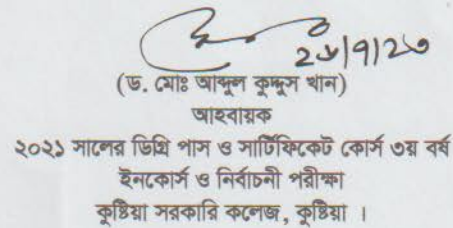 (ড. মোঃ আব্দুল কুদ্দুস খান)
আহবায়ক
২০২১ সালের ডিগ্রি পাস ও সার্টিফিকেট কোর্স ৩য় বর্ষ
ইনকোর্স ও নির্বাচনী পরীক্ষা
কুষ্টিয়া সরকারি কলেজ, কুষ্টিয়া ।